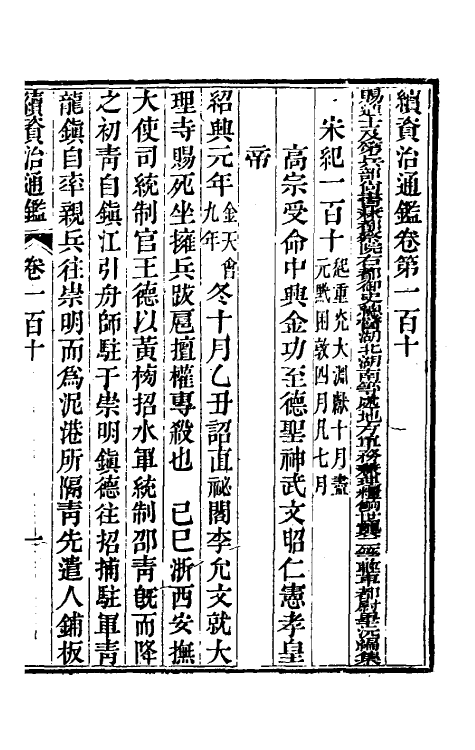 續資治通鑑卷第一百十
賜進士及第兵部尚書兼都察院右都御史總督湖北湖南等處地方軍務兼理糧餉世襲二等輕車都尉畢沅編集
宋紀一百十起重光大淵獻十月盡元黓困敦四月凡七月
高宗受命中興全功至德聖神武文昭仁憲孝皇
帝
紹興元年金天會九年冬十月乙丑詔直祕閣李允文就大
理寺賜死坐擁兵跋扈擅權專殺也　己巳浙西安撫
大使司統制官王德以黃榜招水軍統制邵青旣而降
之初青自鎭江引舟師駐于崇明鎭德往招捕駐軍青
龍鎭自率親兵往崇明而爲泥港所隔青先遣人鋪板
續資治通鑑　卷一百十　一